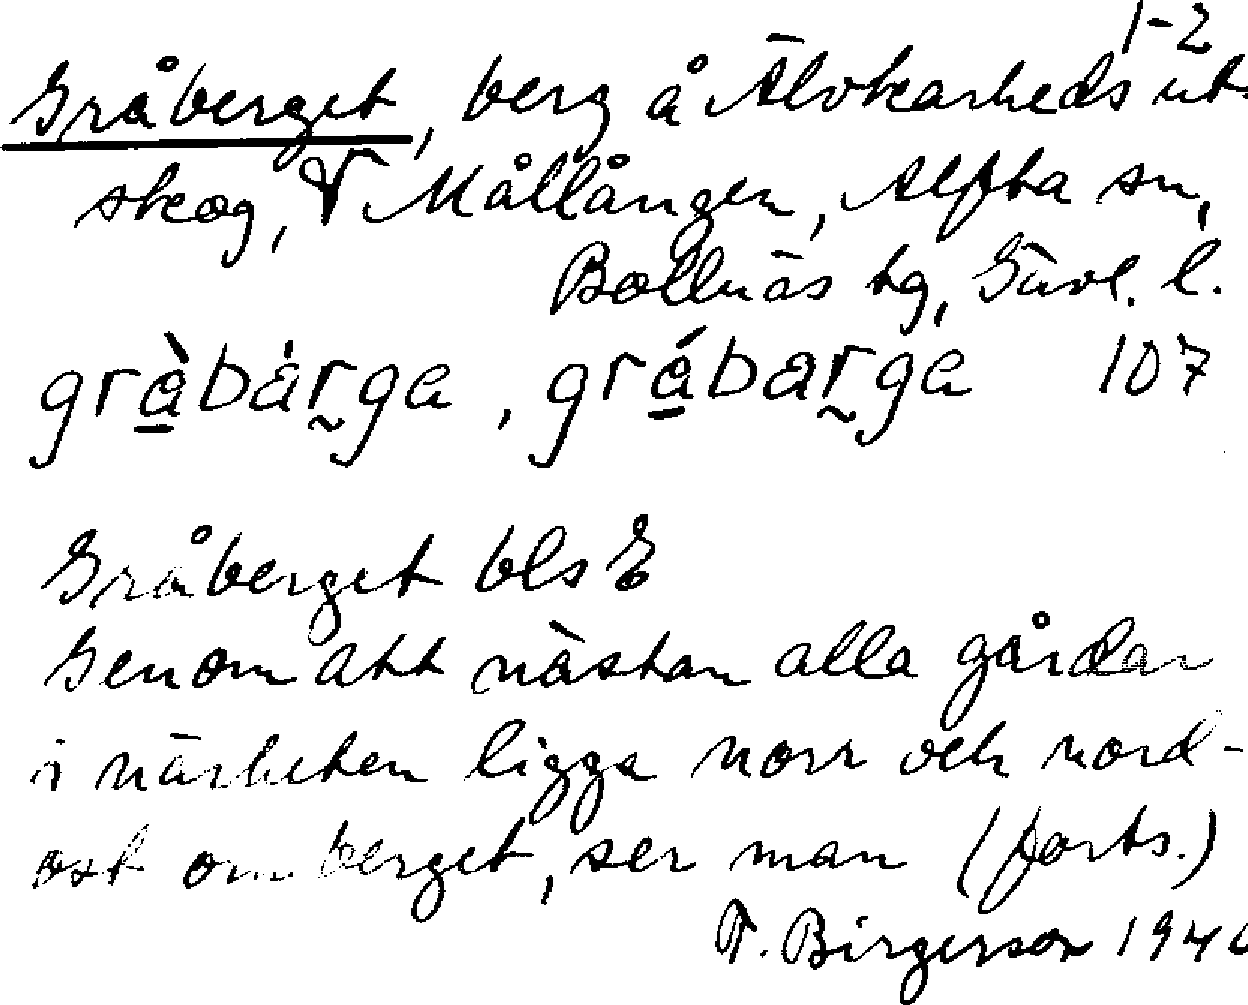 1-2
Gråberget, berg å Älvkarheds ut-
skog, V Mållången, Alfta sn,
Bollnäs tg, Gävl. l.
gràbárga, grábarga 107
Gråberget bls E
Genom att nästan alla gårdar
i närheten ligga norr och nord-
ost om berget, ser man (forts.)
T. Birgerson 194